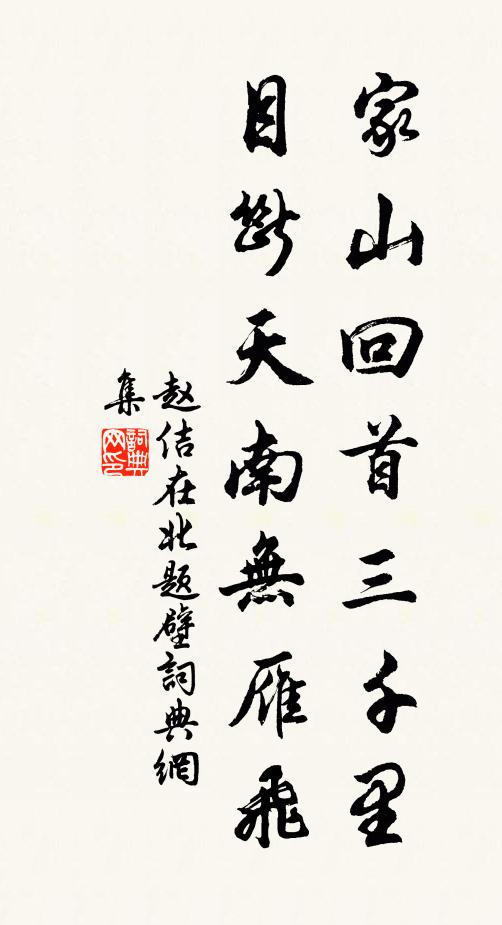 家山回首三千里
目斷天南無雁飛
赵佶在北题壁詞典網
集
詞典网印